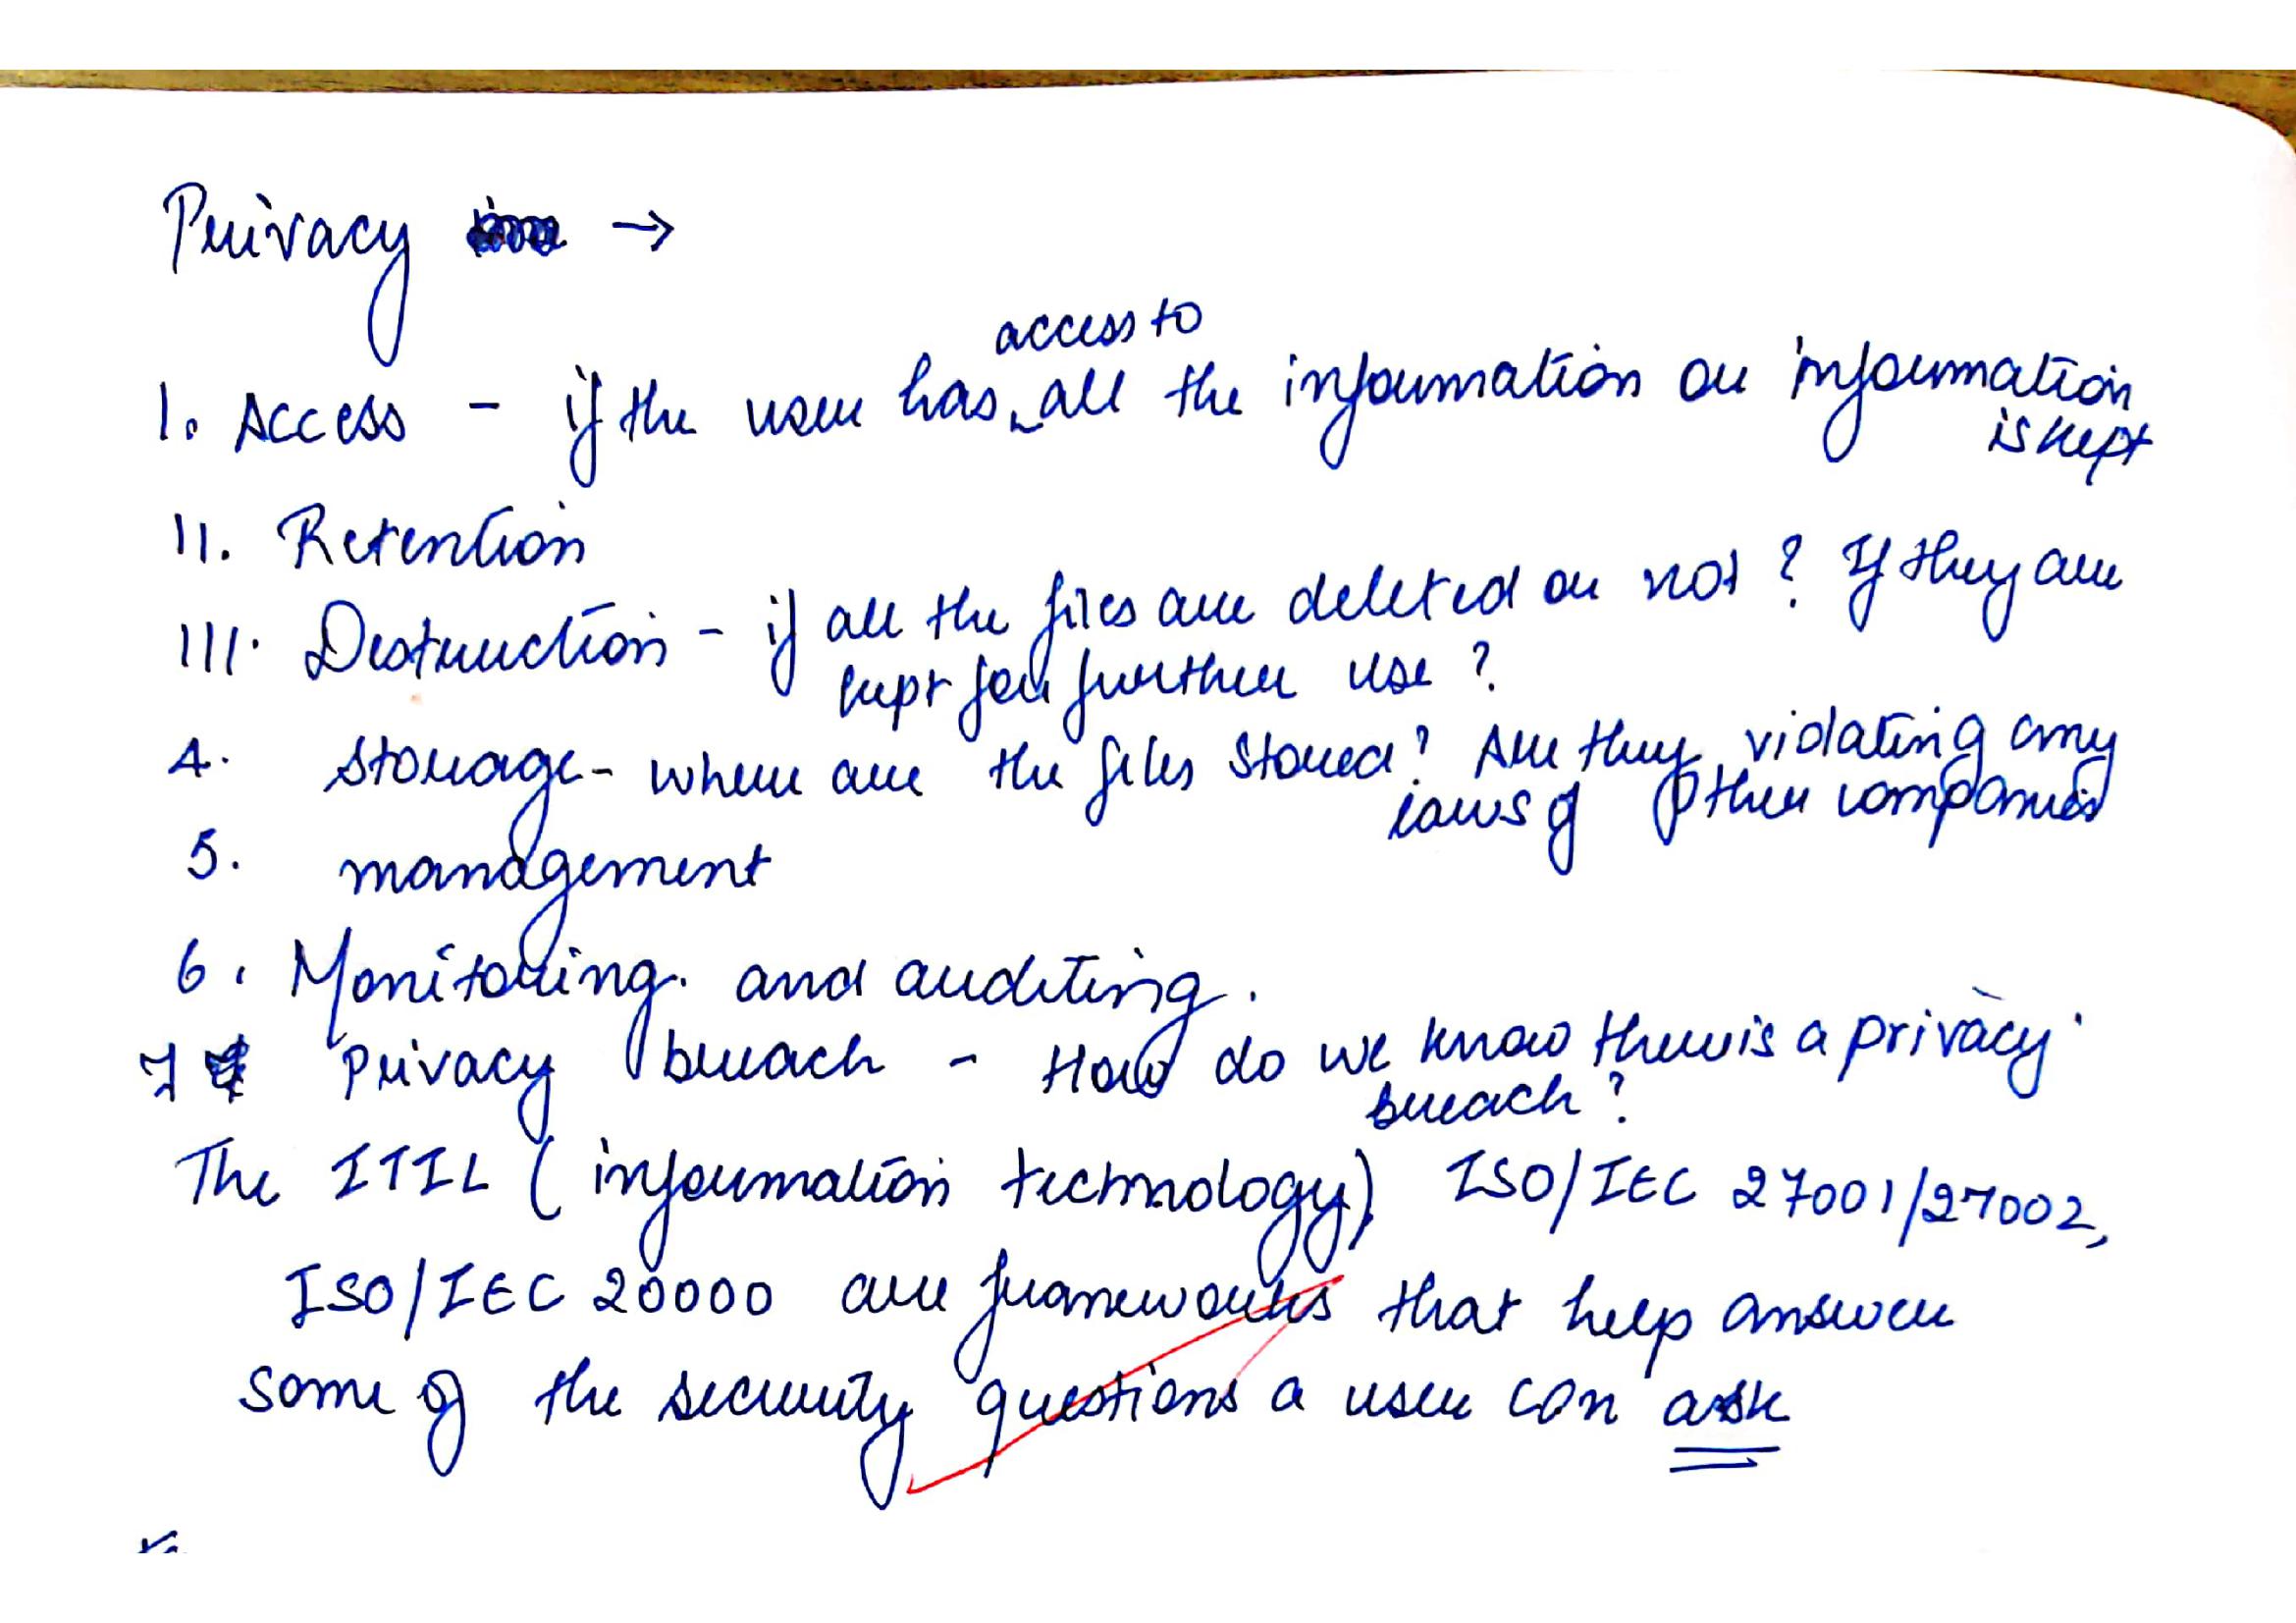 Privacy →
I. Access - if the user has access to all the information or information is kept
II. Retention
III. Destruction - if all the files are deleted or not ? If they are
kept for further use ?
4. storage - where are the files stored? Are they violating any
laws of other companies
5. management
6. Monitoring. and auditing.
7 Privacy breach - How do we know there is a privacy.
breach ?
The ITIL ( information technology) ISO/IEC 27001/27002,
ISO/IEC 20000 are frameworks that help answer
some of the security questions a user can ask